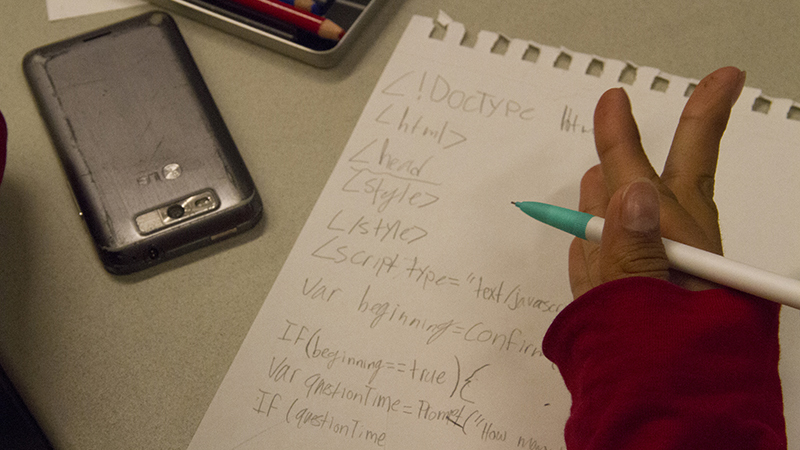 LG
<!DOCTYPE
<html>
<head
<style>
</style>
<script type="text/javasc
var beginning=confirm
If(beginning==true){
var questionTime=Promet("How
If (questionTime